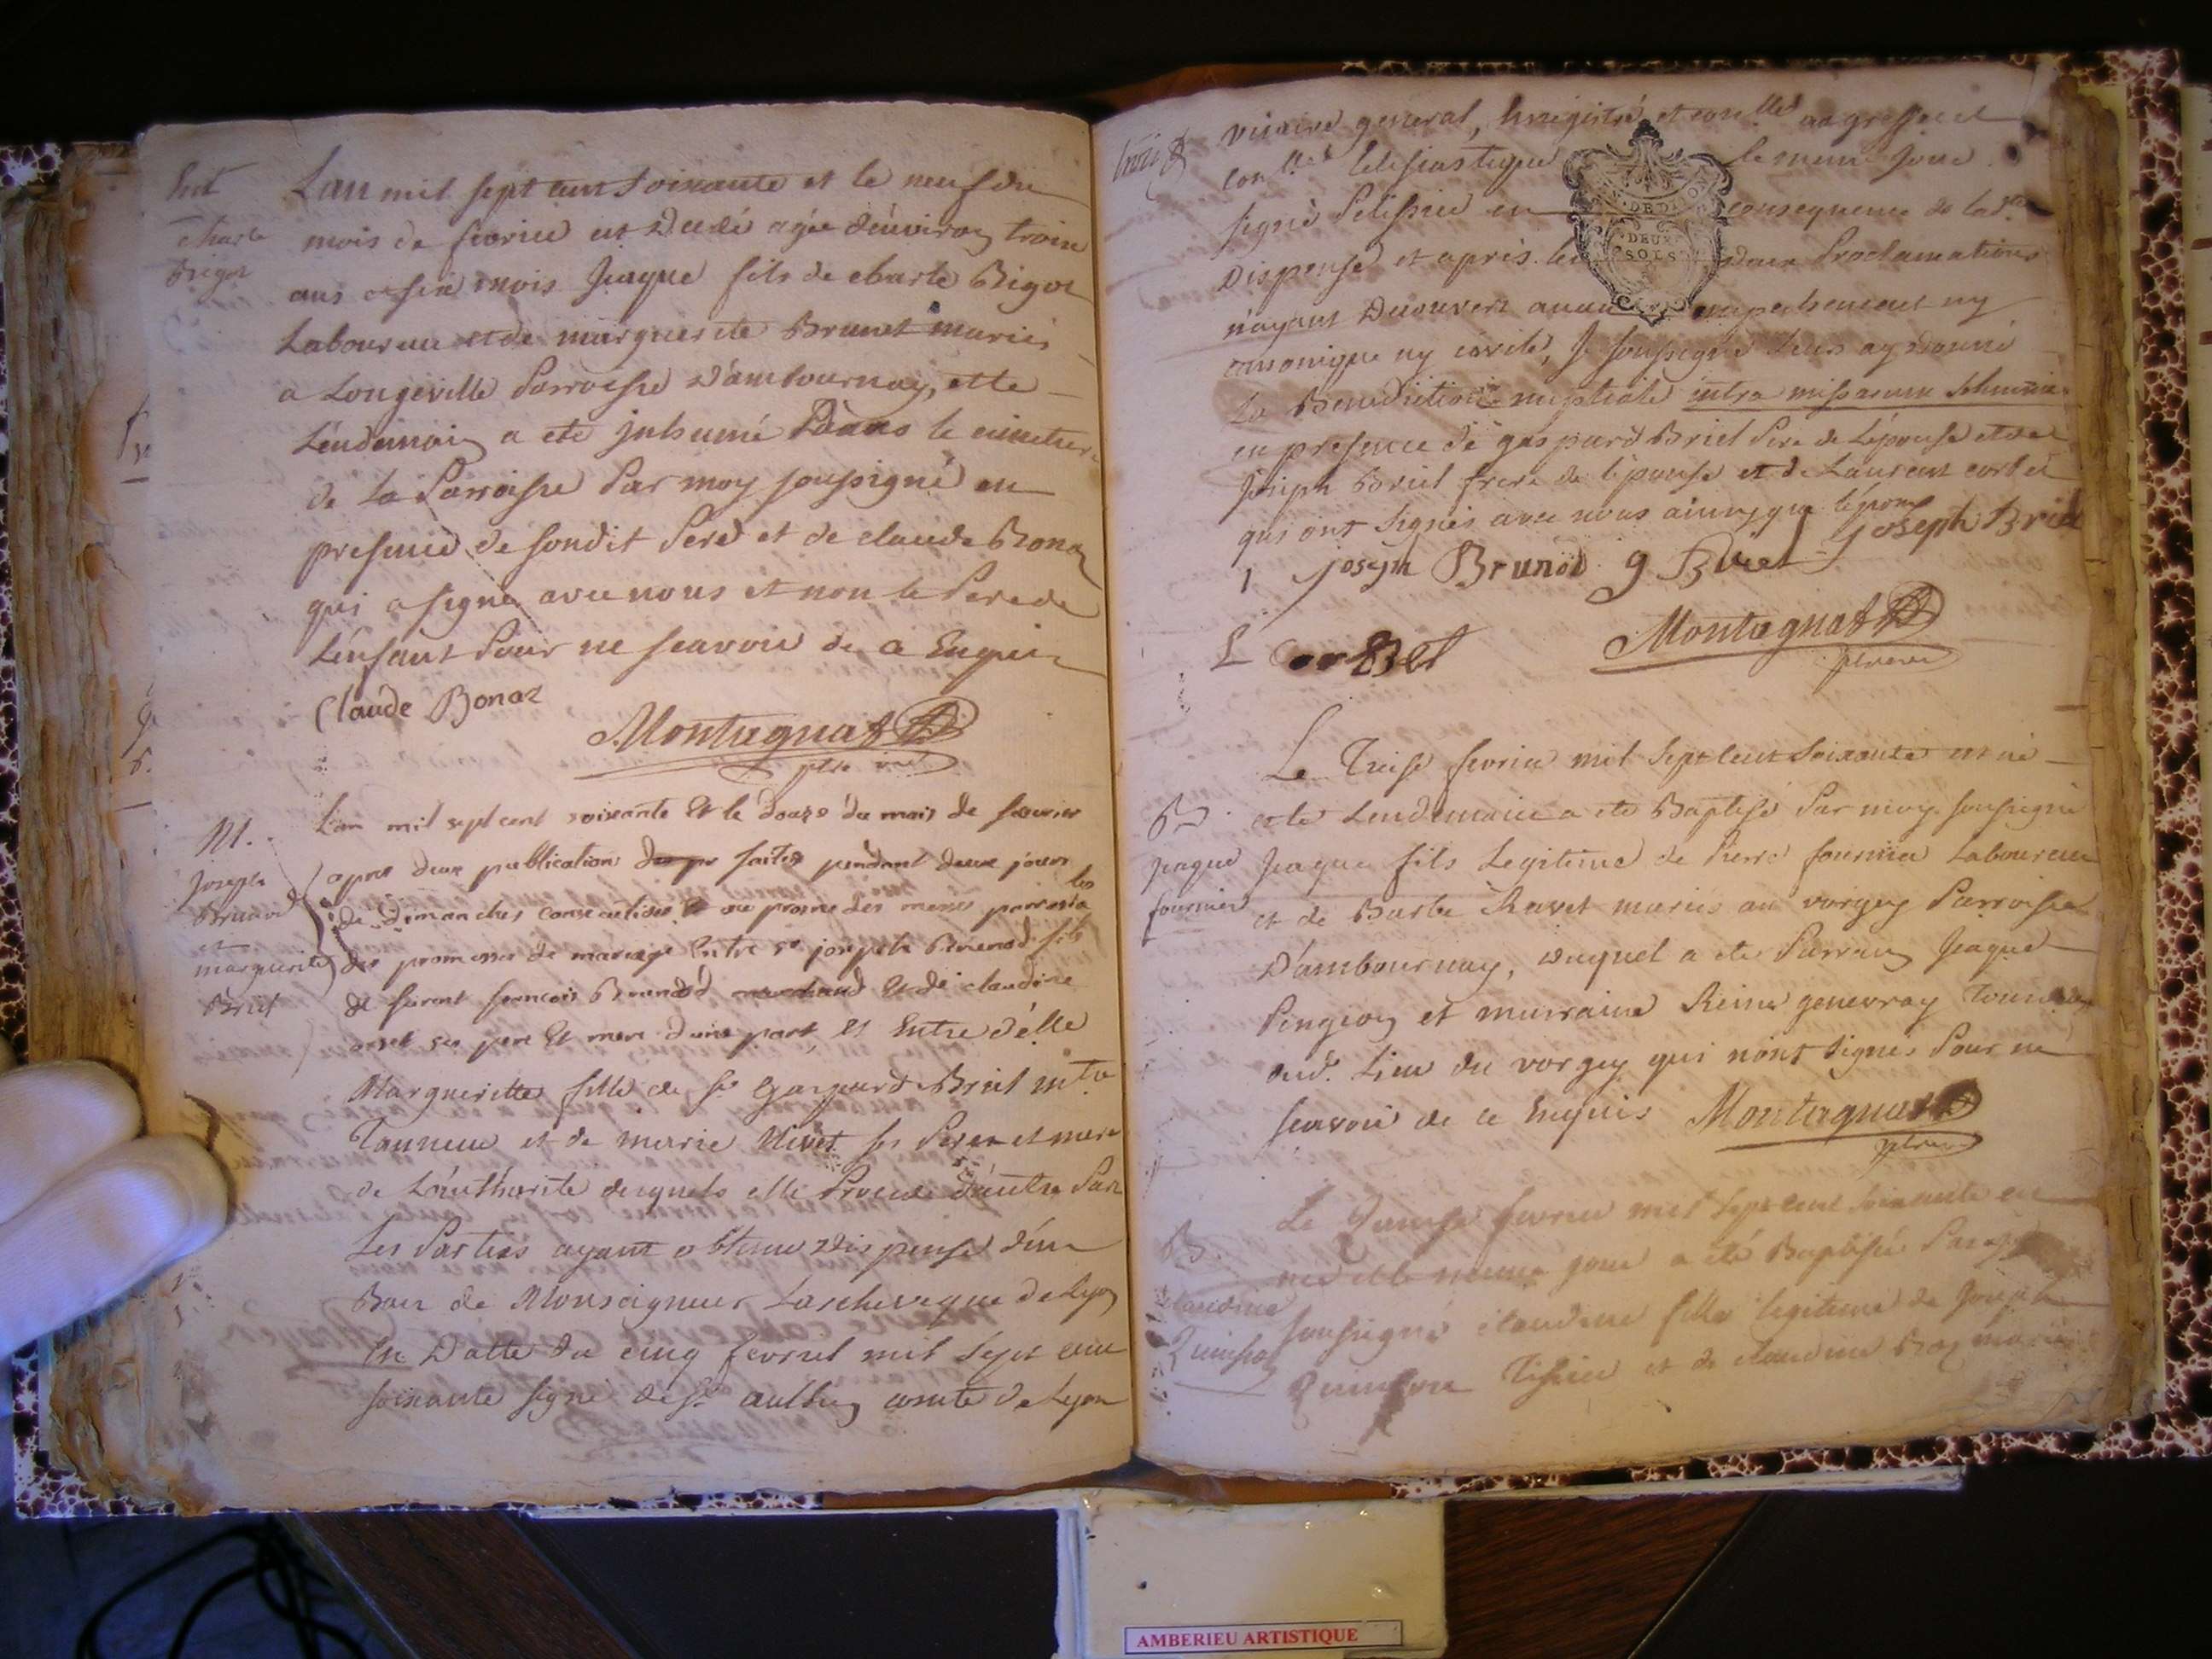 Ent
Charle
Bigot
Lan mil sept cent Soixante et le neuf du
mois de fevrier est Decedé agée d'environ troix
ans et six mois Jeaque fils de charle Bigot
Laboureur et de marguerite Brunet mariés
a Longeville Parroisse D'ambournay, et le
Lendemain a eté jnhumé Dans le cimetiere
de la Parroisse Par moy soussigné en
presence de sondit Pere et de claude Bonaz
qui a signé avec nous et non le Pere de
L'enfant Pour ne scavoir de ce Enquis
Claude Bonaz
Montagnat
ptre
M.
Joseph
Brunod
et
marguerite
Briel
L'an mil sept cent soixante Et le douze du mois de fevrier
apres deux publications faites pendant deux jours
de Dimanches consecutives au prosne des messes parroissia les
des promesses de mariage Entre Sr joseph Brunod fils
de furent francois Brunod marchand Et de claudine
ses pere Et mere d'une part, Et Entre d'elle
Margueritte fille de Sr Gaspard Briel mtre
Tanneur et de marie Nivet ses Pere et mere
de L'authorité desquels elle Procede d'autre Part
Les Parties ayant obtenu Dispense d'un
Ban de Monseigneur L'archeveque de Lyon
En Datte du cinq fevrier mil Sept cent
soixante signé de St aulbin comte de Lyon
vicaire general, Enregistré et conllé au greffe et
conlle Eclesiastique le meme Jour
signé Pelissier en consequence de ladte
DEUX
SOLS
Dispense et apres les deux Proclamations
n'ayant Decouvert aucun empechement ny
canonique ny civile, Je soussigné Leurs ay Donné
La Benediction nuptiale intra missarum Solemnia
en presence de gaspard Briel Pere de L'epouse et de
Joseph Briel frere de l'epouse et de Laurent corbet
qui ont Signés avec nous ainsy que l'epoux
Joseph Briel
joseph Brunod g Briel
L CorBet
Montagnat
ptre
B.
Jeaque
fournier
Le Treise fevrier mil Sept Cent Soixante est né
et le Lendemain a eté Baptisé Par moy soussigné
Jeaque fils Legitime de Pierre fournier Laboureur
et de Barbe Ravet mariés au vorgey Parroisse
D'ambournay, duquel a eté Parrain Jeaque
Pingeon et marraine Reine genevray Tous deux
dud. Lieu du vorgey qui n'ont Signés Pour ne
scavoir de ce Enquis
Montagnat
ptre
B.
claudine
Quinson
Le Quinse fevrier mil Sept cent soixante est
née et le meme jour a été Baptisée Par
soussigné claudine fille legitime de Joseph
Quinson Tissier et de claudine Roy mariés
AMBERIEU ARTISTIQUE